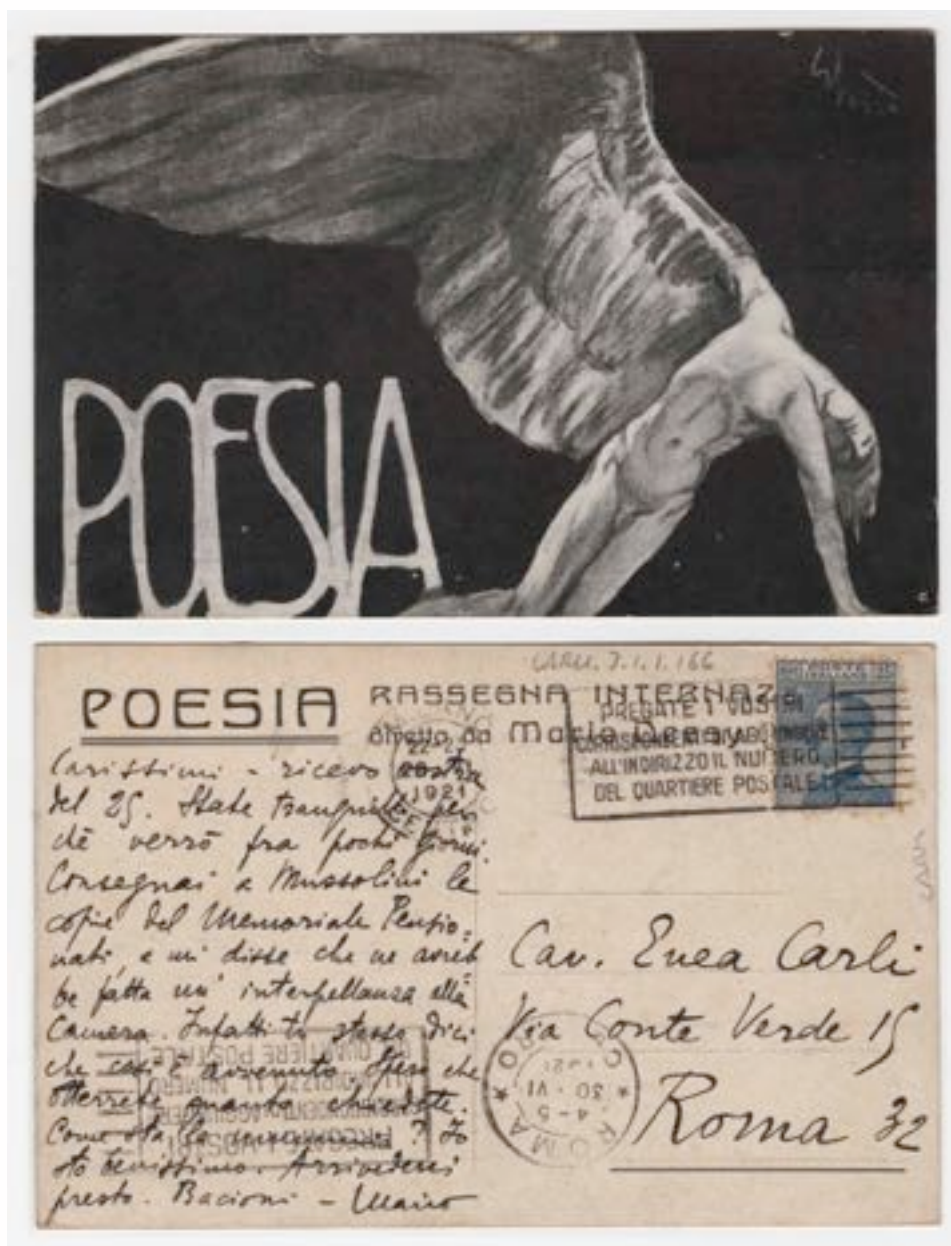 POESIA
POESIA
RASSEGNA INTERNAZ
diretta da Mario Dessy
PREGATE I VOSTRI
CORRISPONDENTI DI AGGIUNGERE
ALL'INDIRIZZO IL NUMERO
DEL QUARTIERE POSTALE
1921
Carissimi - ricevo vostra
del 25. State tranquilli per
chè verrò fra pochi giorni.
Consegnai a Mussolini le
copie del Memoriale Pensio:
nati, e mi disse che ne avreb
be fatta un' interpellanza alla
Camera. Infatti tu stesso dici
che così è avvenuto. Spero che
otterrete quanto chiedete.
Come sta la mamma? Io
sto benissimo. Arrivederci
presto. Bacioni - Mario
Cav. Enea Carli
Via Conte Verde 15
Roma 32
ROMA
4-5
30 · VI